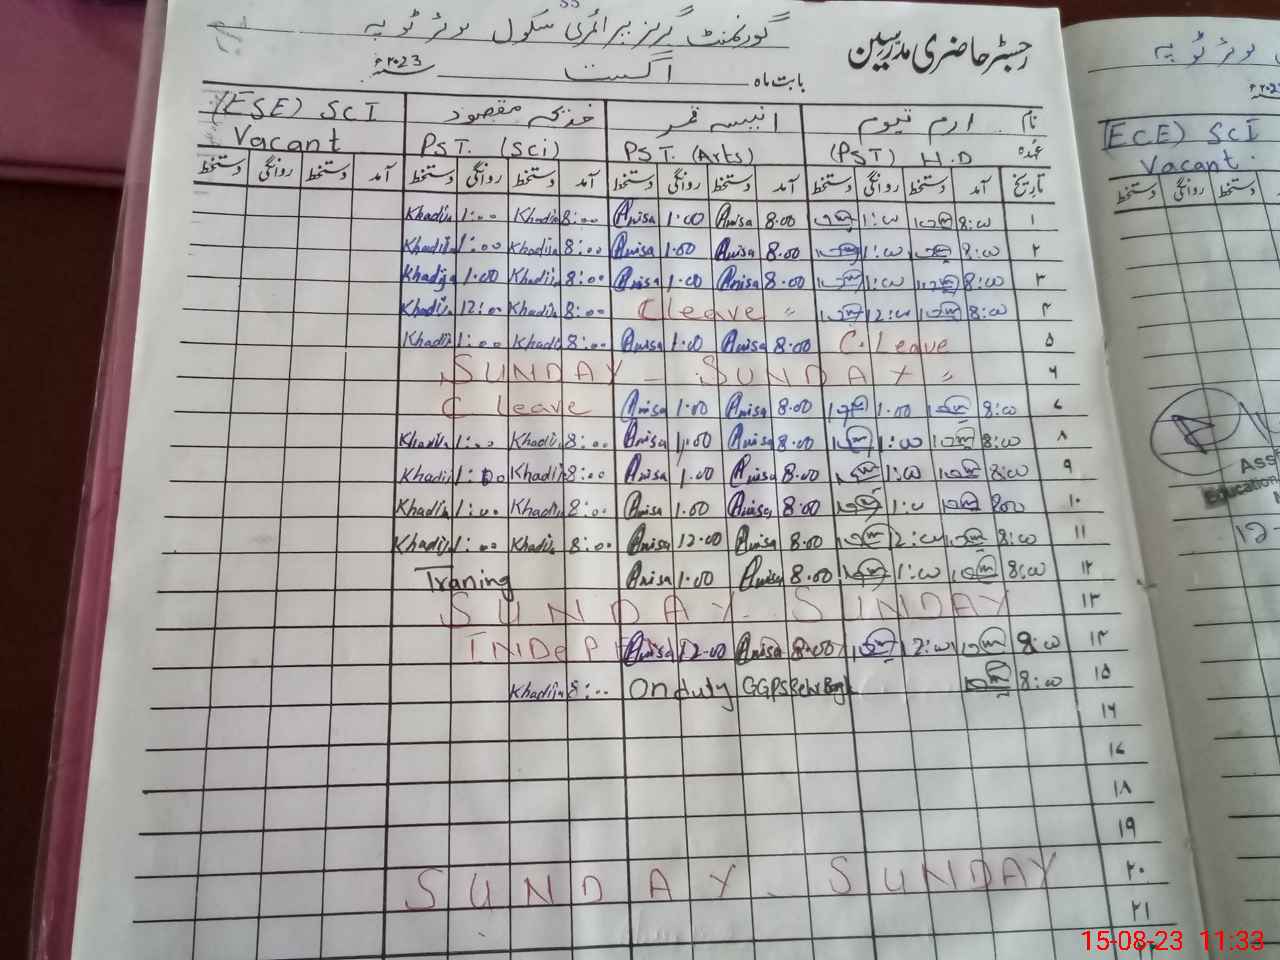 گورنمنٹ گرلز پرائمری سکول
رجسٹر حاضری مدرسین
بابت ماہ اگست ۲۰23ء
نام ارم قیوم انیسہ قمر خدیجہ مقصود (ESE) SCI
عہدہ (PST) H.D PST. (Arts) PST. (Sci) Vacant
تاریخ آمد دستخط روانگی دستخط آمد دستخط روانگی دستخط آمد دستخط روانگی دستخط آمد دستخط روانگی دستخط
۱ 8:00 1:00 8.00 Anisa 1.00 Anisa 8:00 Khadija 1:00 Khadija
۲ 8:00 1:00 8.00 Anisa 1.00 Anisa 8:00 Khadija 1:00 Khadija
۳ 8:00 1:00 8.00 Anisa 1.00 Anisa 8:00 Khadija 1.00 Khadija
۴ 8:00 12:00 C leave " 8:00 Khadija 12:00 Khadija
۵ C. Leave 8.00 Anisa 1.00 Anisa 8:00 Khadija 1:00 Khadija
۶ SUNDAY - SUNDAY "
۷ 8:00 1.00 8.00 Anisa 1.00 Anisa C leave
۸ 8:00 1:00 8.00 Anisa 1.00 Anisa 8:00 Khadija 1:00 Khadija
۹ 8:00 1:00 8.00 Anisa 1.00 Anisa 8:00 Khadija 1:00 Khadija
۱۰ 800 1:00 8.00 Anisa 1.00 Anisa 8:00 Khadija 1:00 Khadija
۱۱ 8:00 12:00 8.00 Anisa 12.00 Anisa 8:00 Khadija 1:00 Khadija
۱۲ 8:00 1:00 8.00 Anisa 1.00 Anisa Traning
۱۳ SUNDAY - SUNDAY
۱۴ 8:00 12:00 8.00 Anisa 12.00 Anisa INDEP
۱۵ 8:00 On duty GGPS 8:00 Khadija
۱۶
۱۷
۱۸
۱۹
۲۰ SUNDAY - SUNDAY
۲۱
(ECE) SCI
Vacant.
دستخط روانگی دستخط
Ass
Education
12-
15-08-23 11:33